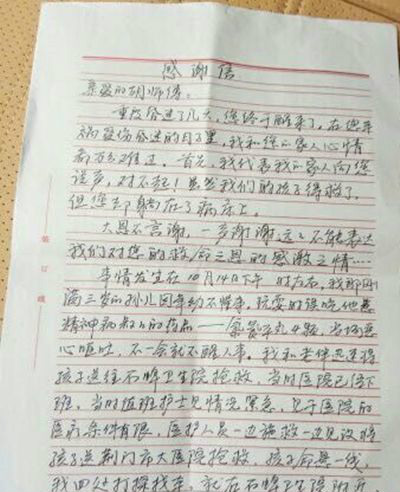 感谢信
亲爱的胡师傅：
重度昏迷了几天，您终于醒来了。在您车
祸受伤昏迷的日子里，我和您的家人心情
都在难过。首先，我代表我的家人向您
说声，对不起！虽然我们的孩子得救了，
但您却躺在了病床上。
大恩不言谢，一声谢谢远远不能表达
我们对您的救命之恩的感激之情……
事情发生在10月14日下午 时左右，我那刚
满三岁的孙儿因年幼不懂事，玩耍时误吃他患
精神 的药品——氯氮平丸4颗，当场恶
心呕吐，不一会就不醒人事。我和老伴迅速将
孩子送往石 卫生院抢救，当时医院已经下
班，当时值班护士见情况紧急，又于医院的
医疗条件有限，医护人员一边施救一边建议将
孩子送荆门市大医院抢救，孩子命悬一线，
我四处打探找车，就在石 卫生院附近
装订线